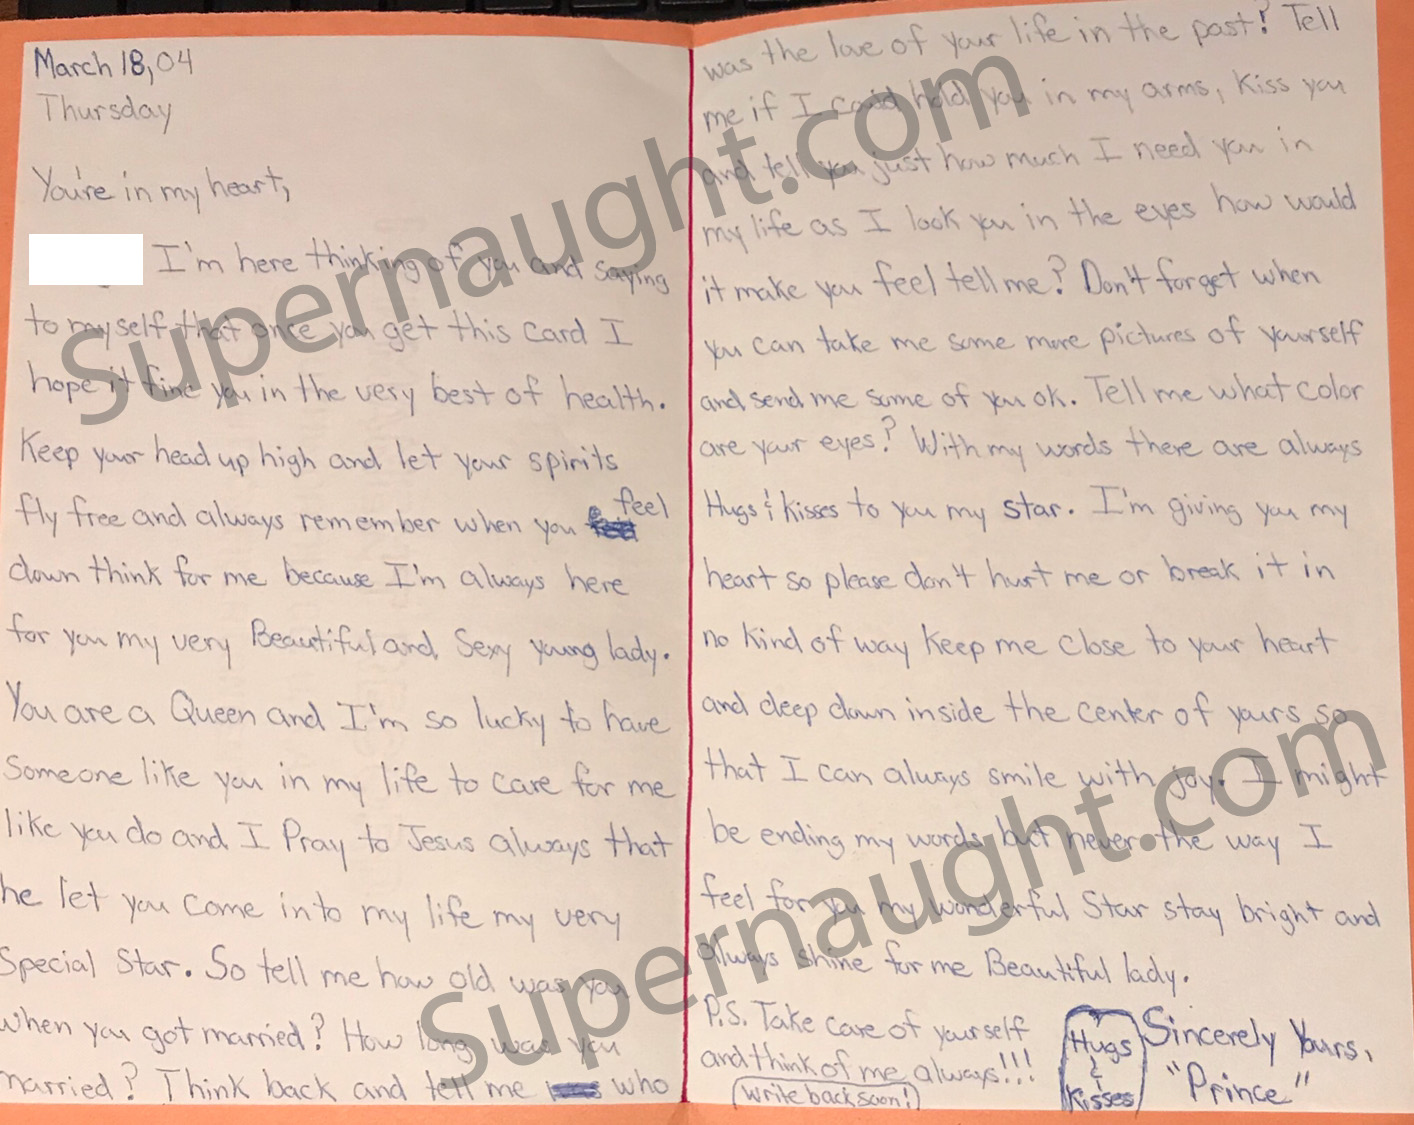 March 18, 04
Thursday
You're in my heart,
I'm here thinking of you and saying
to myself that once you get this card I
hope it fine you in the very best of health.
Keep your head up high and let your spirits
fly free and always remember when you feel
down think for me because I'm always here
for you my very Beautiful and Sexy young lady.
You are a Queen and I'm so lucky to have
Someone like you in my life to care for me
like you do and I Pray to Jesus always that
he let you come into my life my very
Special Star. So tell me how old was you
when you got married? How long was you
married? Think back and tell me who
was the love of your life in the past? Tell
me if I could hold you in my arms, Kiss you
and tell you just how much I need you in
my life as I look you in the eyes how would
it make you feel tell me? Don't forget when
you can take me some more pictures of yourself
and send me some of you ok. Tell me what color
are your eyes? With my words there are always
Hugs & Kisses to you my star. I'm giving you my
heart so please don't hurt me or break it in
no kind of way keep me close to your heart
and deep down inside the center of yours so
that I can always smile with joy. I might
be ending my words but never the way I
feel for you my wonderful Star stay bright and
always shine for me Beautiful lady.
P.S. Take care of yourself
and think of me always!!!
Write back soon!
Hugs
&
Kisses
Sincerely Yours,
"Prince"
Supernaught.com
Supernaught.com